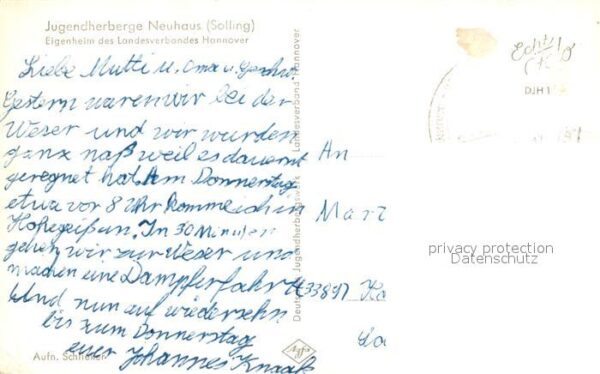 Jugendherberge Neuhaus (Solling)
Eigenheim des Landesverbandes Hannover
Liebe Mutti u. Oma u. Geschw.
Gestern waren wir bei der
Weser und wir wurden
ganz naß weil es dauernt
geregnet hat. Am Donnerstag
etwa vor 8 Uhr komme ich in
an. In 30 Minuten
gehen wir zur Weser und
machen eine Dampferfahrt
Und nun auf wiedersehn
bis zum Donnerstag
euer Johannes Knaak
Aufn. Schlieker
Deutsches Jugendherbergswerk Landesverband Hannover
Agfa
Echt
DJH
An
Mart
privacy protection
Datenschutz